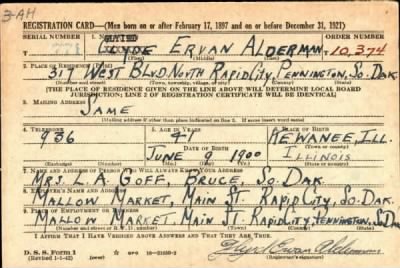 3-AH
REGISTRATION CARD—(Men born on or after February 17, 1897 and on or before December 31, 1921)
SERIAL NUMBER 1. NAME (Print) ORDER NUMBER
ERVAN ALDERMAN 10,374
(First) (Middle) (Last)
2. PLACE OF RESIDENCE (Print)
317 West Blvd. North Rapid City, Pennington, So. Dak.
(Number and street) (Town, township, village, or city) (County) (State)
[THE PLACE OF RESIDENCE GIVEN ON THE LINE ABOVE WILL DETERMINE LOCAL BOARD
JURISDICTION; LINE 2 OF REGISTRATION CERTIFICATE WILL BE IDENTICAL]
3. MAILING ADDRESS
SAME
(Mailing address if other than place indicated on line 2. If same insert word same)
4. TELEPHONE 5. AGE IN YEARS 6. PLACE OF BIRTH
936 41 KEWANEE, ILL.
DATE OF BIRTH (Town or county)
JUNE 9 1900 ILLINOIS
(Exchange) (Number) (Mo.) (Day) (Yr.) (State or country)
7. NAME AND ADDRESS OF PERSON WHO WILL ALWAYS KNOW YOUR ADDRESS
MRS. L. A. GOFF, BRUCE, SO. DAK.
8. EMPLOYER'S NAME AND ADDRESS
MALLOW MARKET, MAIN ST. RAPID CITY, SO. DAK.
9. PLACE OF EMPLOYMENT OR BUSINESS
MALLOW MARKET, MAIN ST. RAPID CITY, PENNINGTON, SO. DAK.
(Number and street or R. F. D. number) (Town) (County) (State)
I AFFIRM THAT I HAVE VERIFIED ABOVE ANSWERS AND THAT THEY ARE TRUE.
D. S. S. Form 1
(Revised 1-1-42) (over)
(Registrant's signature)